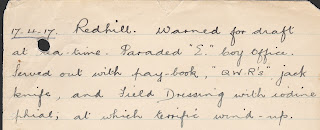 17.4.17. Redhill. Warned for draft
at tea-time. Paraded "E." Coy Office.
Served out with pay-book, "Q.W.R's" jack
knife, and Field Dressing with iodine
phial, at which terrific wind-up.